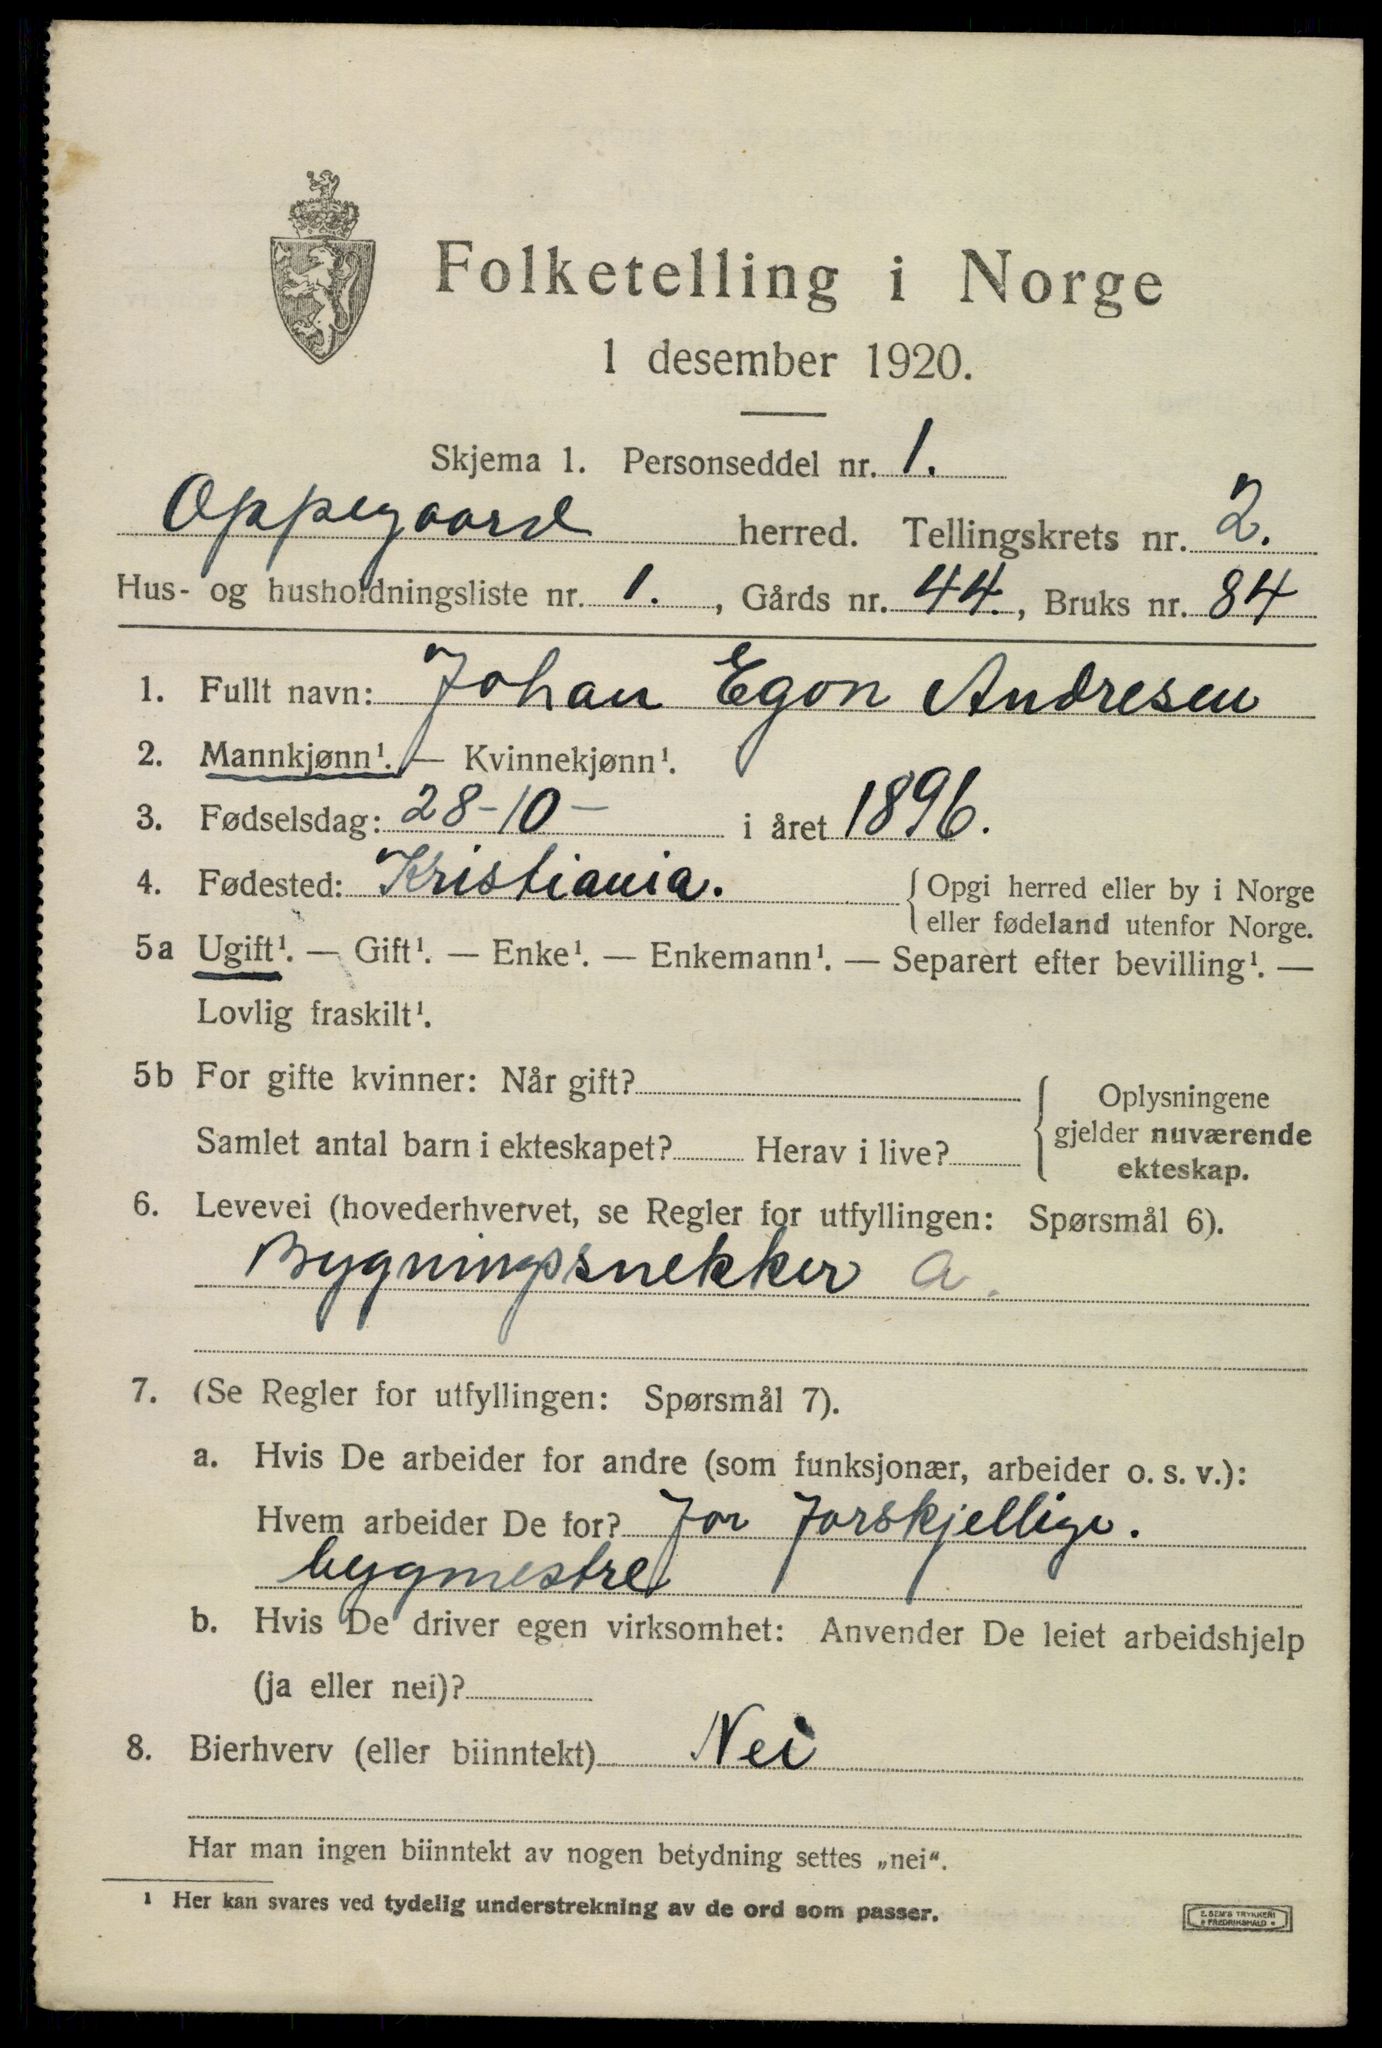 Folketelling i Norge
1 desember 1920.
Skjema 1. Personseddel nr. 1.
Oppegaard herred. Tellingskrets nr. 2.
Hus- og husholdningsliste nr. 1., Gårds nr. 44., Bruks nr. 84
1. Fullt navn: Johan Egon Andresen
2. Mannkjønn¹. — Kvinnekjønn¹.
3. Fødselsdag: 28-10- i året 1896.
4. Fødested: Kristiania. { Opgi herred eller by i Norge
eller fødeland utenfor Norge.
5a Ugift¹. — Gift¹. — Enke¹. — Enkemann¹. — Separert efter bevilling¹. —
Lovlig fraskilt¹.
5b For gifte kvinner: Når gift? { Oplysningene
gjelder nuværende
Samlet antal barn i ekteskapet? Herav i live?
ekteskap.
6. Levevei (hovederhvervet, se Regler for utfyllingen: Spørsmål 6).
Bygningssnekker a.
7. (Se Regler for utfyllingen: Spørsmål 7).
a. Hvis De arbeider for andre (som funksjonær, arbeider o. s. v.):
Hvem arbeider De for? for forskjellige.
bygmestre
b. Hvis De driver egen virksomhet: Anvender De leiet arbeidshjelp
(ja eller nei)?
8. Bierhverv (eller biinntekt) Nei
Har man ingen biinntekt av nogen betydning settes „nei“.
¹ Her kan svares ved tydelig understrekning av de ord som passer.
E. SEM'S TRYKKERI
• FREDRIKSHALD •